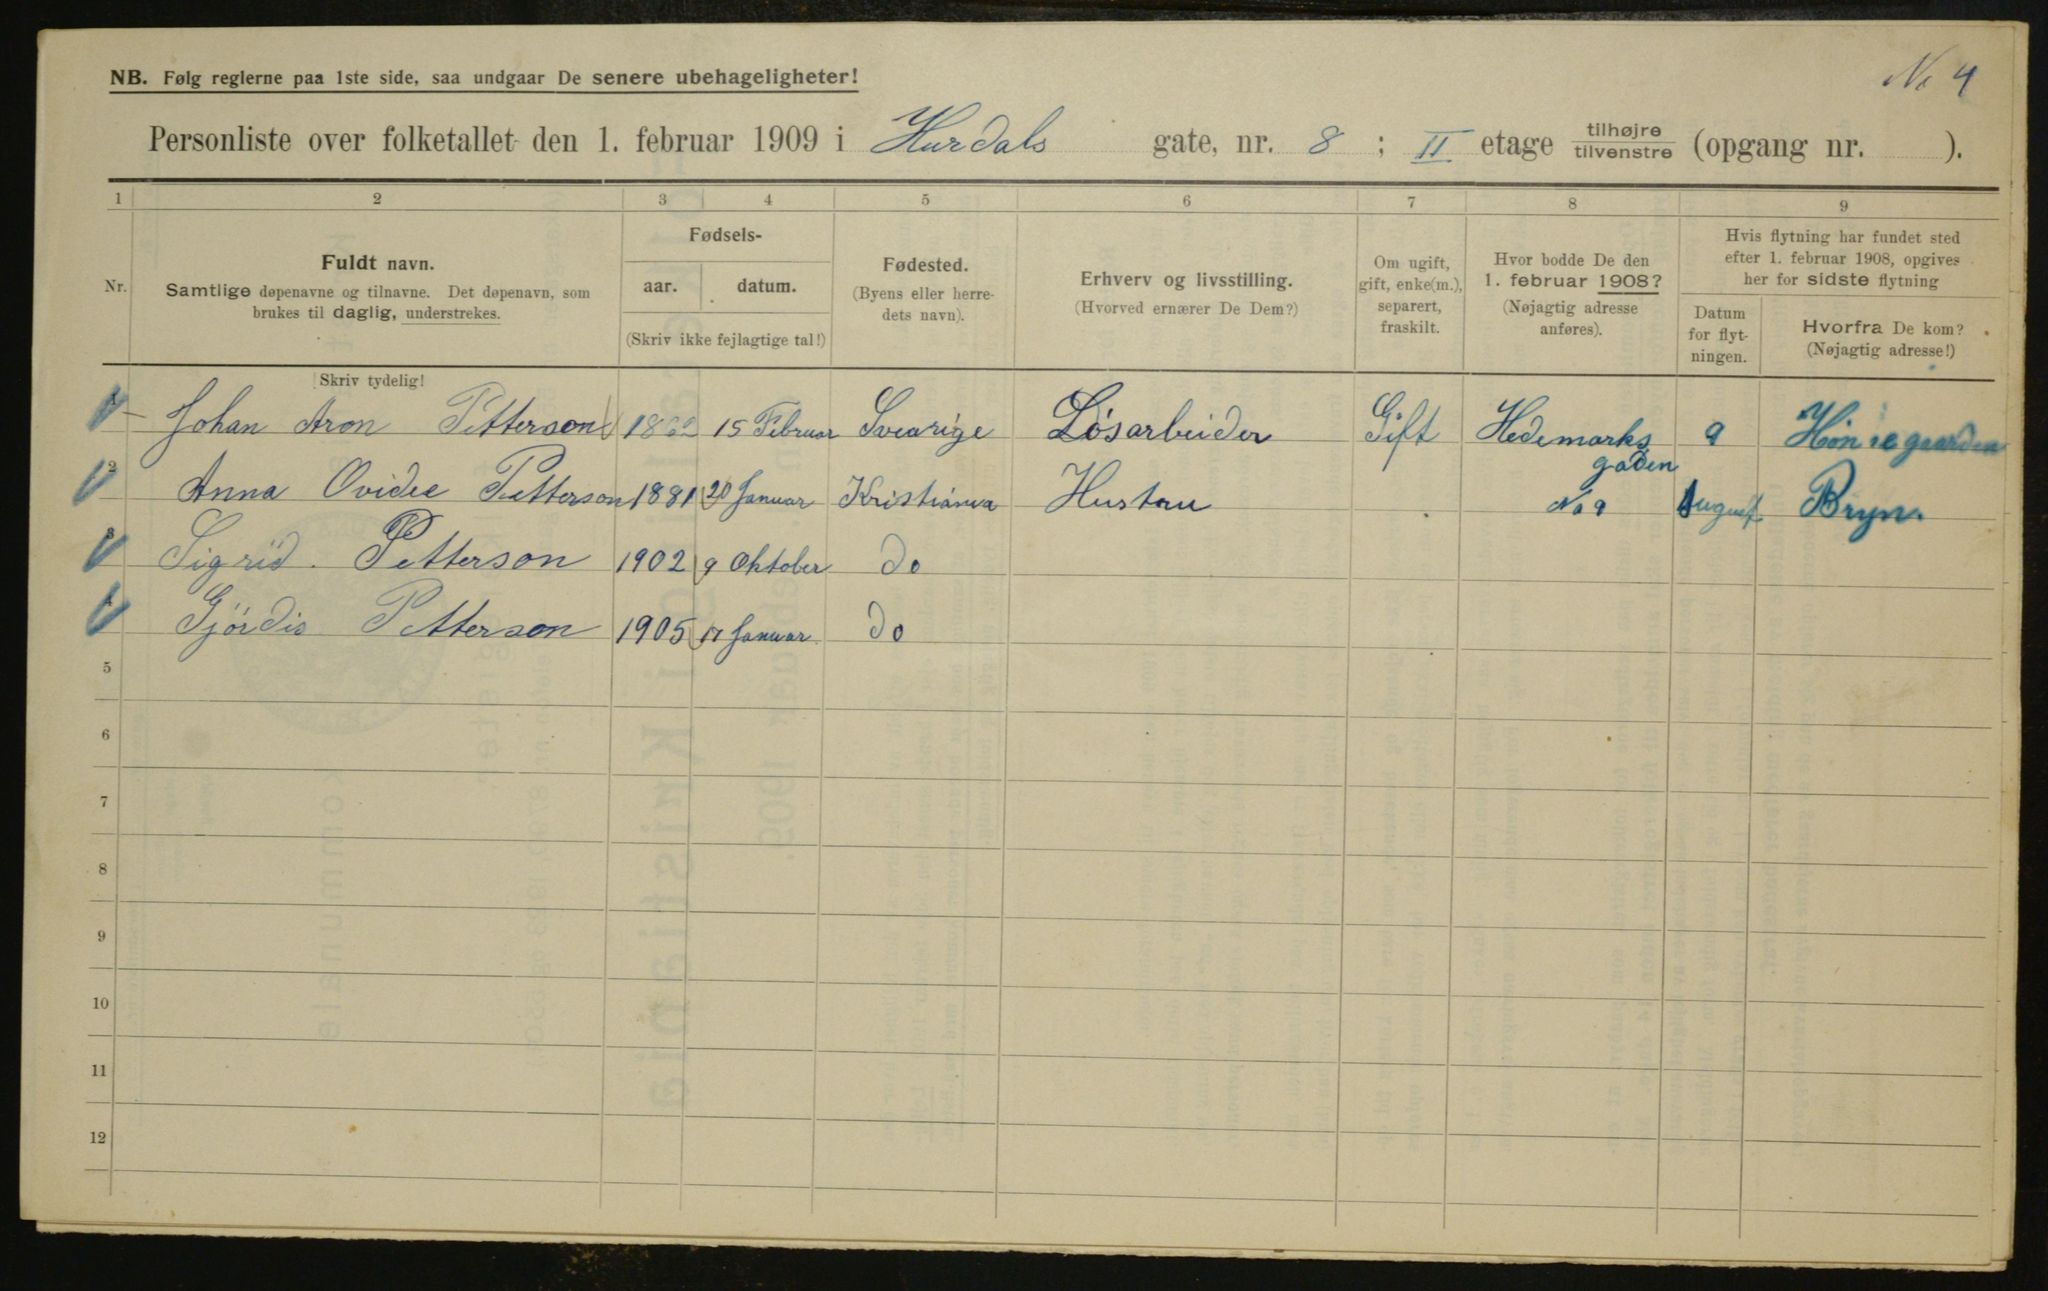 No 4
NB. Følg reglerne paa 1ste side, saa undgaar De senere ubehageligheter!
Personliste over folketallet den 1. februar 1909 i Hurdals gate, nr. 8 ; II etage tilhøjre/tilvenstre (opgang nr. ).
1 2 3 4 5 6 7 8 9
Nr.
Fuldt navn.
Samtlige døpenavne og tilnavne. Det døpenavn, som
brukes til daglig, understrekes.
Fødsels-
aar. datum.
(Skriv ikke fejlagtige tal!)
Fødested.
(Byens eller herre-
dets navn).
Erhverv og livsstilling.
(Hvorved ernærer De Dem?)
Om ugift,
gift, enke(m.),
separert,
fraskilt.
Hvor bodde De den
1. februar 1908?
(Nøjagtig adresse
anføres).
Hvis flytning har fundet sted
efter 1. februar 1908, opgives
her for sidste flytning
Datum
for flyt-
ningen.
Hvorfra De kom?
(Nøjagtig adresse!)
Skriv tydelig!
1 Johan Aron Petterson 15 Februar Svearige Løsarbeider Gift Hedemarks 9
gaden
2 Anna Ovidee Petterson 1881 20 Januar Kristiania Hustru No 9 August Bryn.
3 Sigrid. Petterson 1902 9 Oktober do
4 Gjørdis Petterson 1905 17 Januar do
5
6
7
8
9
10
11
12